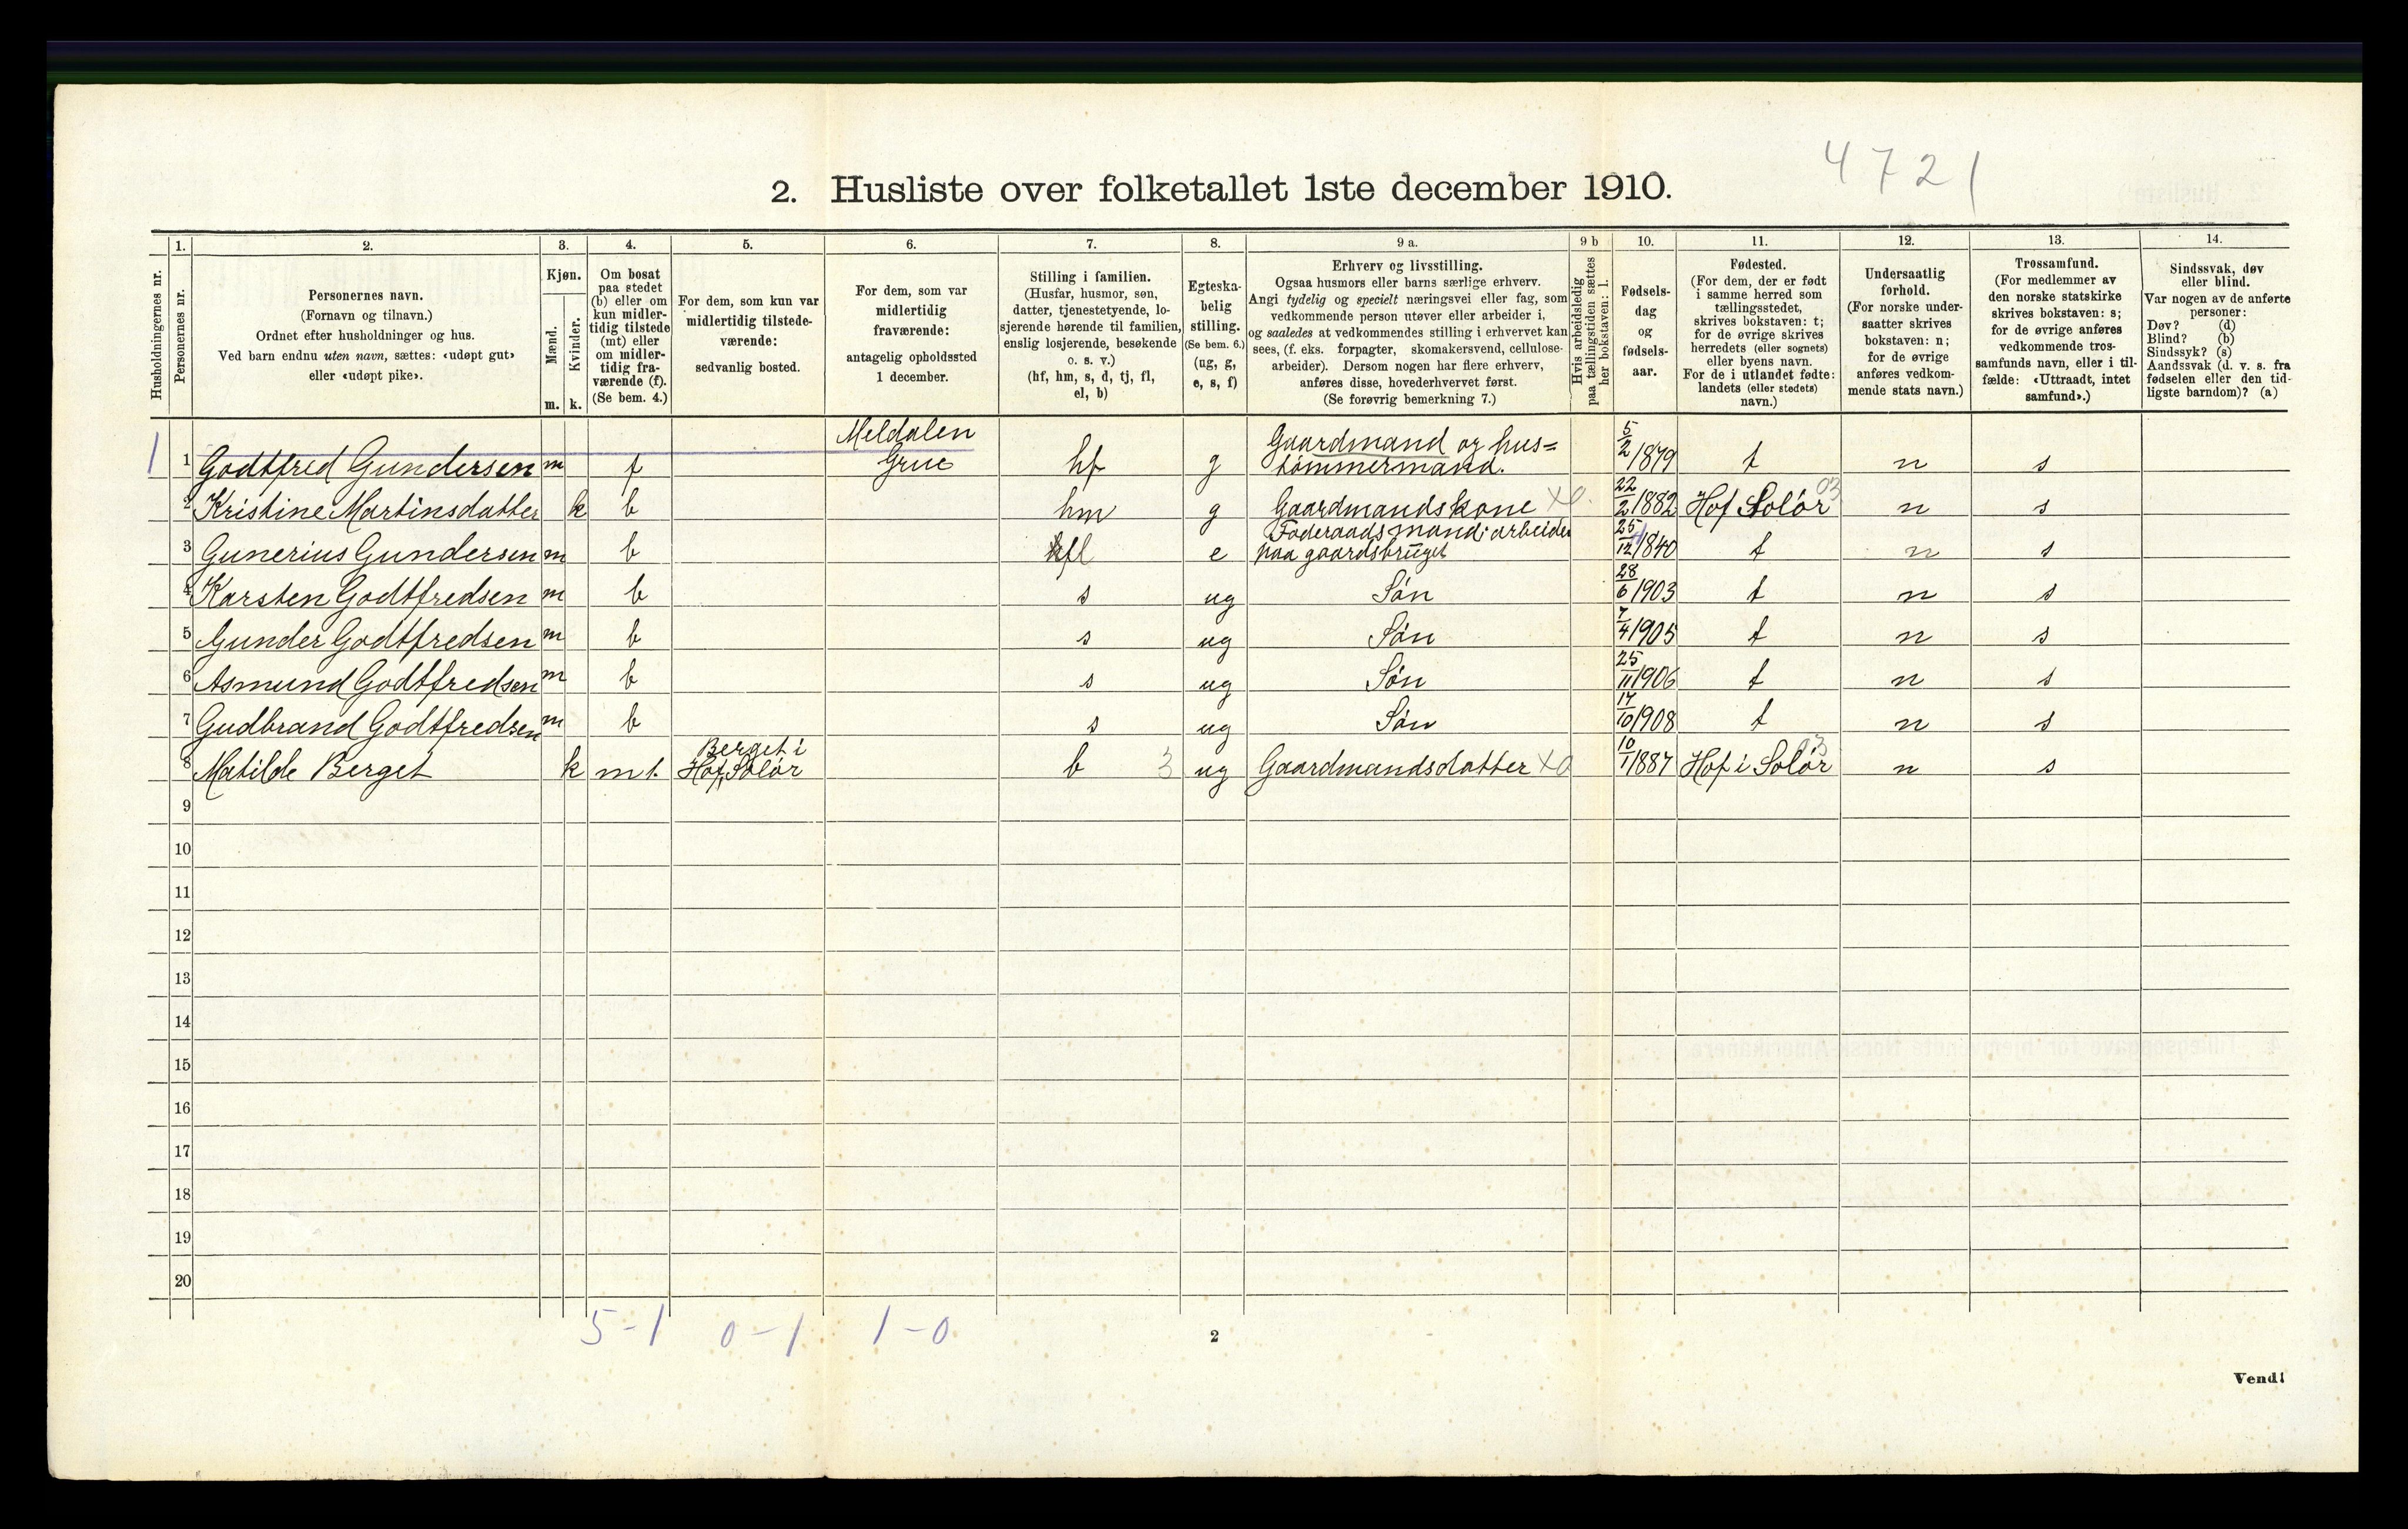 4721
2. Husliste over folketallet 1ste december 1910.
Husholdningernes nr.
1.
Personernes nr.
2.
Personernes navn.
(Fornavn og tilnavn.)
Ordnet efter husholdninger og hus.
Ved barn endnu uten navn, sættes: «udøpt gut»
eller «udøpt pike».
3.
Kjøn.
Mænd.
Kvinder.
m. k.
4.
Om bosat
paa stedet
(b) eller om
kun midler-
tidig tilstede
(mt) eller
om midler-
tidig fra-
værende (f).
(Se bem. 4.)
5.
For dem, som kun var
midlertidig tilstede-
værende:
sedvanlig bosted.
6.
For dem, som var
midlertidig
fraværende:
antagelig opholdssted
1 december.
7.
Stilling i familien.
(Husfar, husmor, søn,
datter, tjenestetyende, lo-
sjerende hørende til familien,
enslig losjerende, besøkende
o. s. v.)
(hf, hm, s, d, tj, fl,
el, b)
8.
Egteska-
belig
stilling.
(Se bem. 6.)
(ug, g,
e, s, f)
9 a.
Erhverv og livsstilling.
Ogsaa husmors eller barns særlige erhverv.
Angi tydelig og specielt næringsvei eller fag, som
vedkommende person utøver eller arbeider i,
og saaledes at vedkommendes stilling i erhvervet kan
sees, (f. eks. forpagter, skomakersvend, cellulose-
arbeider). Dersom nogen har flere erhverv,
anføres disse, hovederhvervet først.
(Se forøvrig bemerkning 7.)
9 b
Hvis arbeidsledig
paa tællingstiden sættes
her bokstaven: l.
10.
Fødsels-
dag
og
fødsels-
aar.
11.
Fødested.
(For dem, der er født
i samme herred som
tællingsstedet,
skrives bokstaven: t;
for de øvrige skrives
herredets (eller sognets)
eller byens navn.
For de i utlandet fødte:
landets (eller stedets)
navn.)
12.
Undersaatlig
forhold.
(For norske under-
saatter skrives
bokstaven: n;
for de øvrige
anføres vedkom-
mende stats navn.)
13.
Trossamfund.
(For medlemmer av
den norske statskirke
skrives bokstaven: s;
for de øvrige anføres
vedkommende tros-
samfunds navn, eller i til-
fælde: «Uttraadt, intet
samfund».)
14.
Sindssvak, døv
eller blind.
Var nogen av de anførte
personer:
Døv? (d)
Blind? (b)
Sindssyk? (s)
Aandssvak (d. v. s. fra
fødselen eller den tid-
ligste barndom)? (a)
1 1 Godtfred Gundersen m f Meldalen Grue hf g Gaardmand og hus= tømmermand. 5/2 1879 t n s
2 Kristine Martinsdatter k b hm g Gaardmandskone X0. 22/2 1882 Hof Solør 03 n s
3 Gunerius Gundersen m b fl e Føderaadsmand i arbeider paa gaardsbruget 25/12 1840 t n s
4 Karsten Godtfredsen m b s ug Søn 28/6 1903 t n s
5 Gunder Godtfredsen m b s ug Søn 7/4 1905 t n s
6 Asmund Godtfredsen m b s ug Søn 25/11 1906 t n s
7 Gudbrand Godtfredsen m b s ug Søn 17/10 1908 t n s
8 Matilde Berget k mt. Berget i Hof, Solør b 3 ug Gaardmandsdatter X0 10/1 1887 Hof i Solør 03 n s
9
10
11
12
13
14
15
16
17
18
19
20
5-1 0-1 1-0
2
Vend!